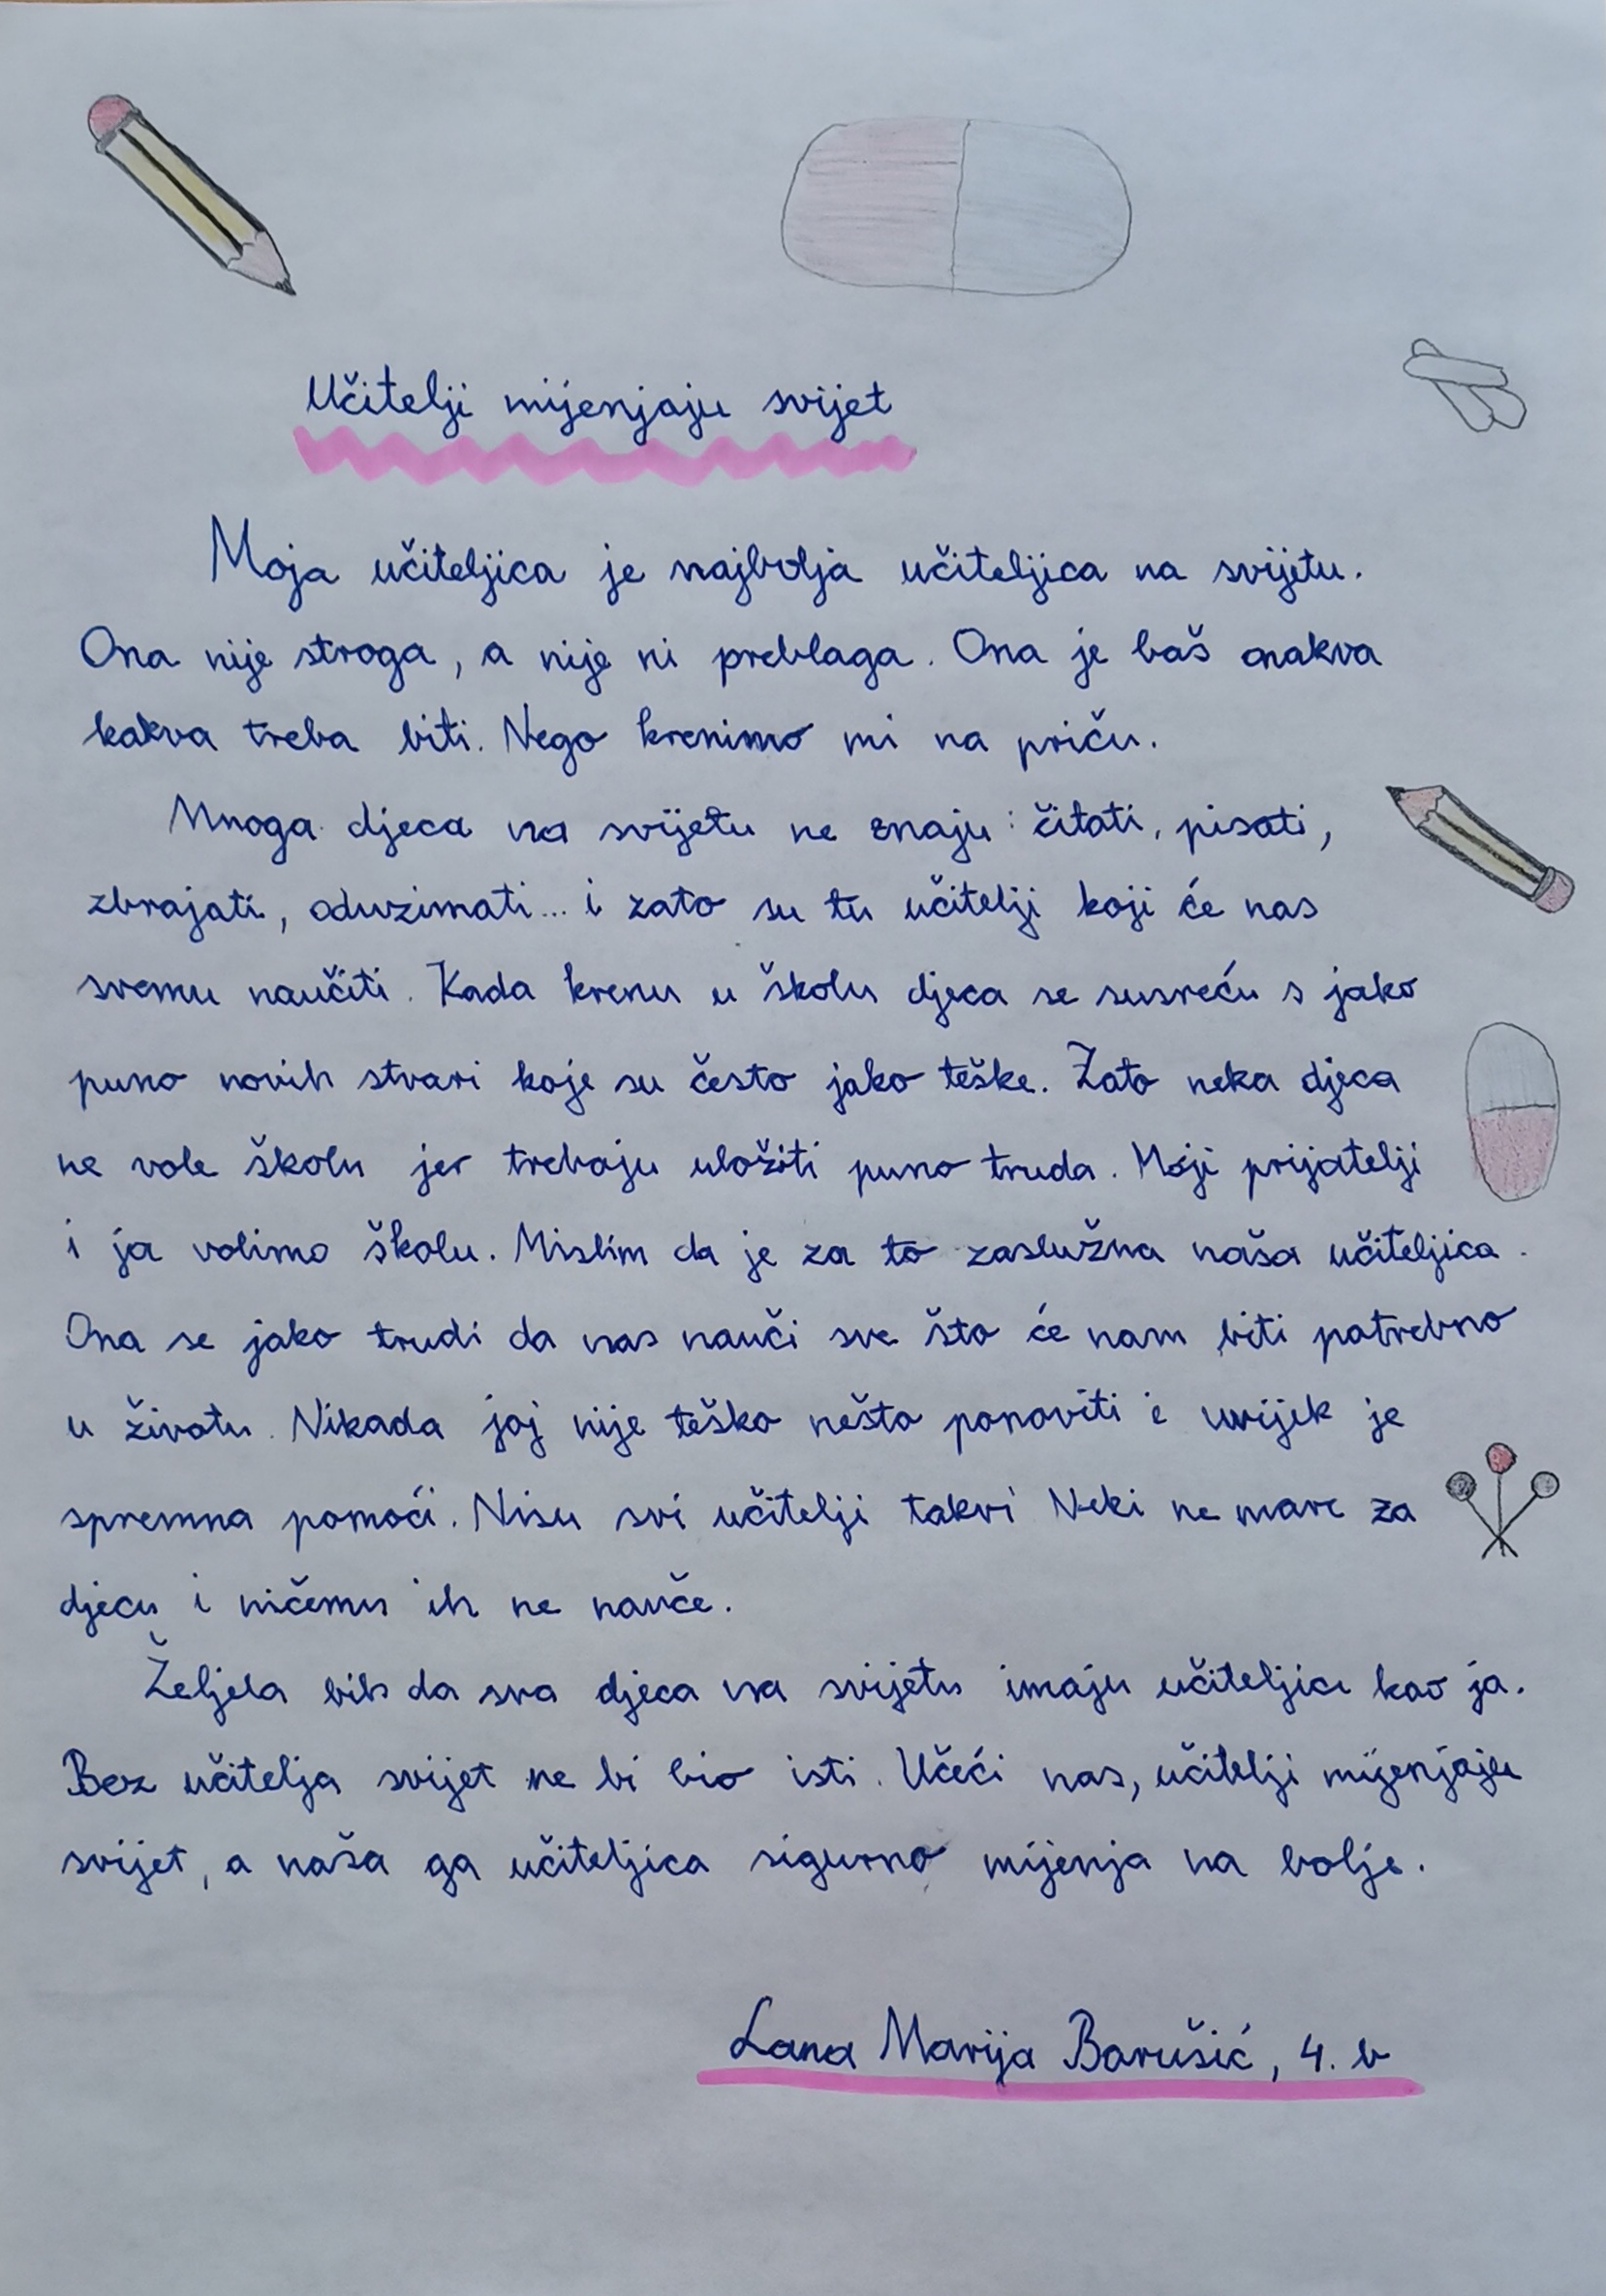 Učitelji mijenjaju svijet
Moja učiteljica je najbolja učiteljica na svijetu.
Ona nije stroga, a nije ni preblaga. Ona je baš onakva
kakva treba biti. Nego krenimo mi na priču.
Mnoga djeca na svijetu ne znaju: čitati, pisati,
zbrajati, oduzimati... i zato su tu učitelji koji će nas
svemu naučiti. Kada krenu u školu djeca se susreću s jako
puno novih stvari koje su često jako teške. Zato neka djeca
ne vole školu jer trebaju uložiti puno truda. Moji prijatelji
i ja volimo školu. Mislim da je za to zaslužna naša učiteljica.
Ona se jako trudi da nas nauči sve što će nam biti potrebno
u životu. Nikada joj nije teško nešto ponoviti i uvijek je
spremna pomoći. Nisu svi učitelji takvi Neki ne mare za
djecu i ničemu ih ne nauče.
Željela bih da sva djeca na svijetu imaju učiteljicu kao ja.
Bez učitelja svijet ne bi bio isti. Učeći nas, učitelji mijenjaju
svijet, a naša ga učiteljica sigurno mijenja na bolje.
Lana Marija Barušić, 4. b